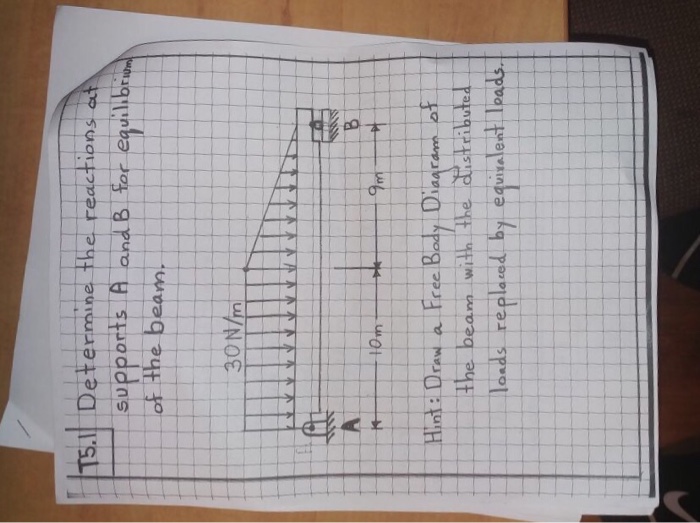 T5.1 Determine the reactions at
supports A and B for equilibrium
of the beam.
30N/m
A
B
10m
9m
Hint: Draw a Free Body Diagram of
the beam with the distributed
loads replaced by equivalent loads.